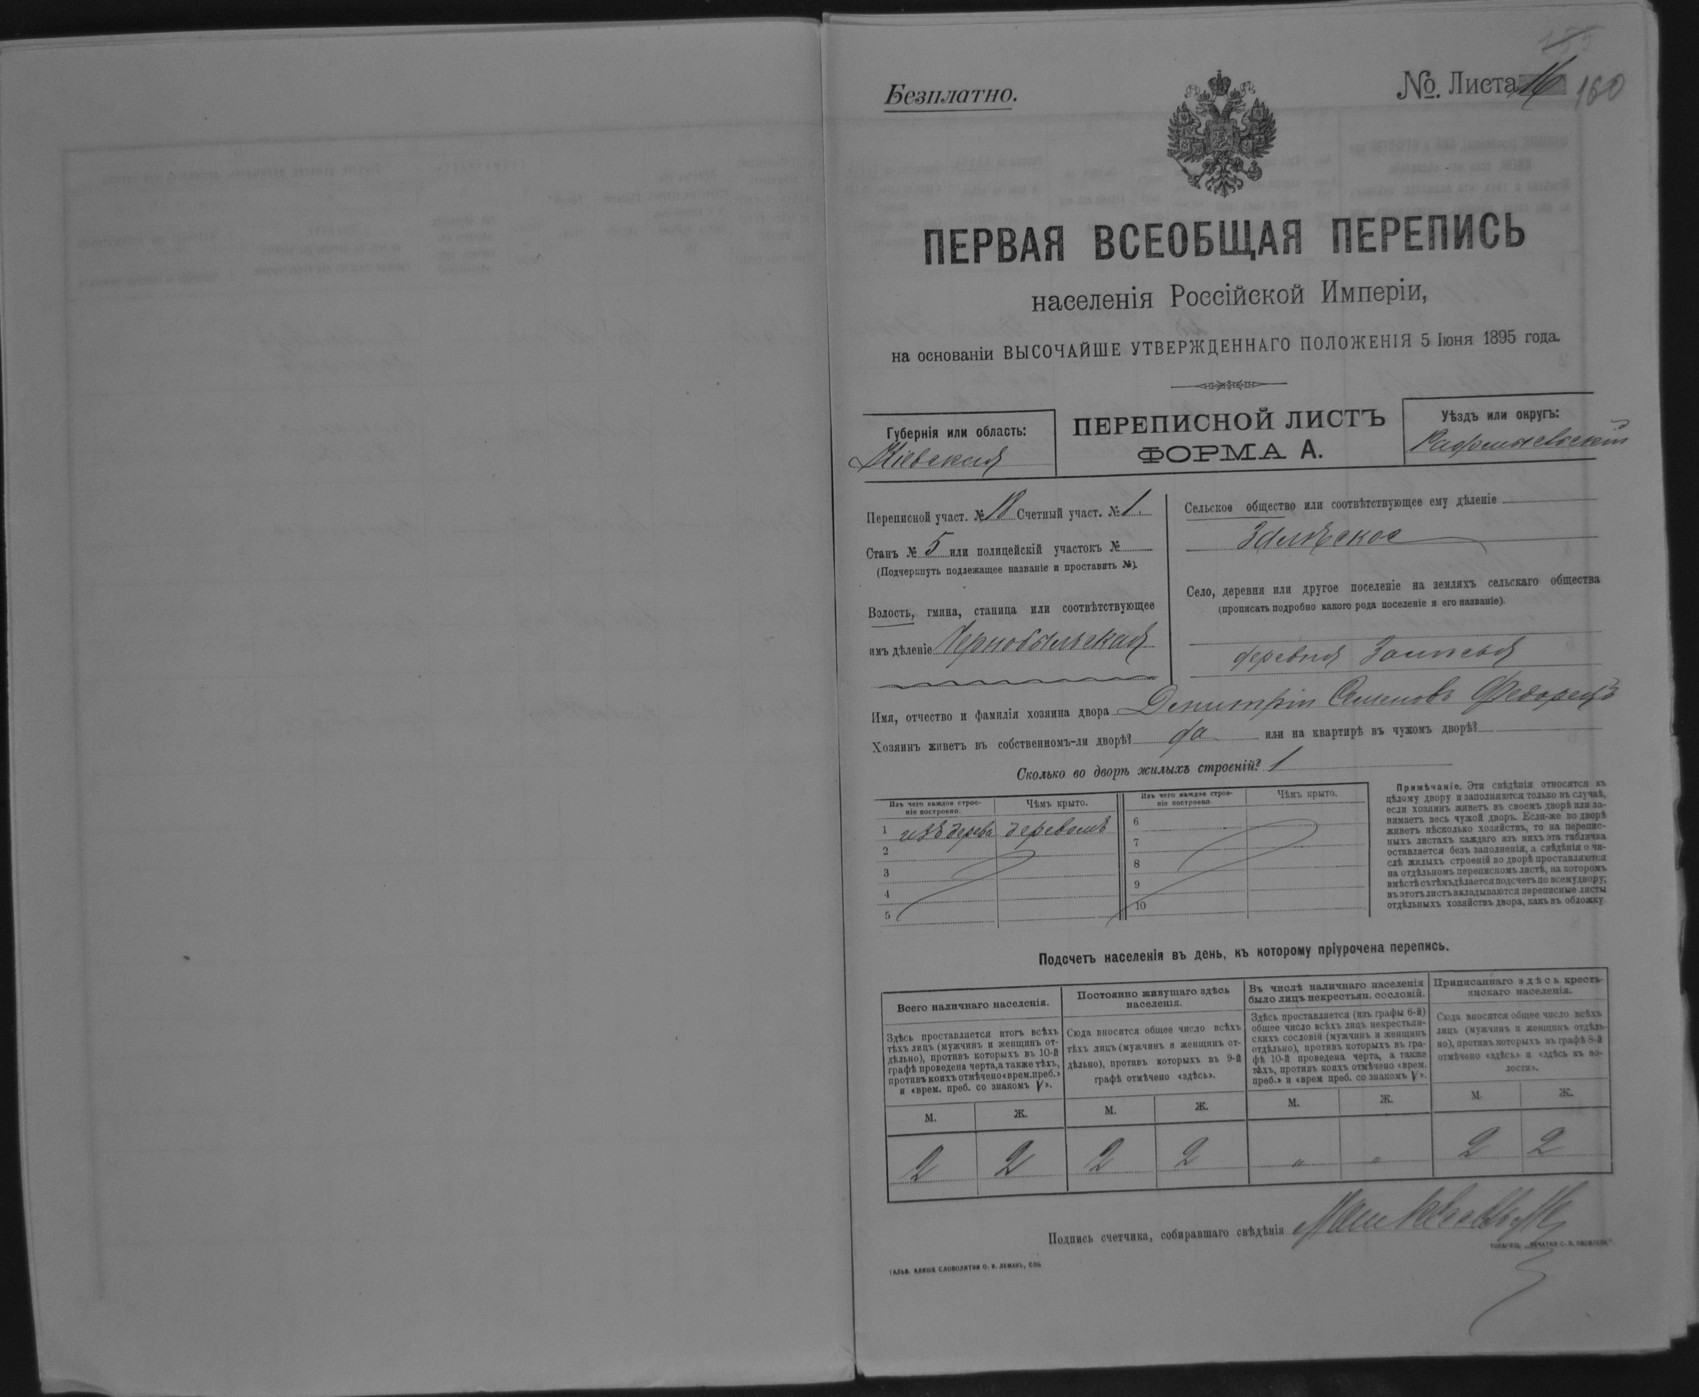 Безплатно.
№. Листа 16 160
ПЕРВАЯ ВСЕОБЩАЯ ПЕРЕПИСЬ
населенія Россійской Имперіи,
на основаніи ВЫСОЧАЙШЕ УТВЕРЖДЕННАГО ПОЛОЖЕНІЯ 5 Іюня 1895 года.
Губернія или область:
Кіевская
ПЕРЕПИСНОЙ ЛИСТЪ
ФОРМА А.
Уѣздъ или округъ:
Радомысльскій
Переписной участ. № 18 Счетный участ. № 1.
Станъ № 5 или полицейскій участокъ №
(Подчеркнуть подлежащее названіе и проставить №).
Волость, гмина, станица или соотвѣтствующее
имъ дѣленіе Чернобыльская
Сельское общество или соотвѣтствующее ему дѣленіе
Село, деревня или другое поселеніе на земляхъ сельскаго общества
(прописать подробно какого рода поселеніе и его названіе).
деревня Залесья
Имя, отчество и фамилія хозяина двора Димитрій Семеновъ Федорецъ
Хозяинъ живетъ въ собственномъ-ли дворѣ? да или на квартирѣ въ чужомъ дворѣ?
Сколько во дворѣ жилыхъ строеній? 1
Изъ чего каждое строе-
ніе построено.
Чѣмъ крыто.
Изъ чего каждое строе-
ніе построено.
Чѣмъ крыто.
1 изъ дерева деревомъ
2
3
4
5
6
7
8
9
10
Примѣчаніе. Эти свѣдѣнія относятся къ
цѣлому двору и заполняются только въ случаѣ,
если хозяинъ живетъ въ своемъ дворѣ или за-
нимаетъ весь чужой дворъ. Если-же во дворѣ
живетъ нѣсколько хозяйствъ, то на перепис-
ныхъ листахъ каждаго изъ нихъ эта табличка
оставляется безъ заполненія, а свѣдѣнія о чи-
слѣ жилыхъ строеній во дворѣ проставляются
на отдѣльномъ переписномъ листѣ, на которомъ
вмѣстѣ съ тѣмъ дѣлается подсчетъ по всему двору;
въ этотъ листъ вкладываются переписные листы
отдѣльныхъ хозяйствъ двора, какъ въ обложку.
Подсчетъ населенія въ день, къ которому пріурочена перепись.
Всего наличнаго населенія.
Здѣсь проставляется итогъ всѣхъ
тѣхъ лицъ (мужчинъ и женщинъ от-
дѣльно), противъ которыхъ въ 10-й
графѣ проведена черта, а также тѣхъ,
противъ коихъ отмѣчено «врем. преб.»
и «врем. преб. со знакомъ V».
Постоянно живущаго здѣсь
населенія.
Сюда вносится общее число всѣхъ
тѣхъ лицъ (мужчинъ и женщинъ от-
дѣльно), противъ которыхъ въ 9-й
графѣ отмѣчено «здѣсь».
Въ числѣ наличнаго населенія
было лицъ некрестьян. сословій.
Здѣсь проставляется (изъ графы 6-й)
общее число всѣхъ лицъ некрестьян-
скихъ сословій (мужчинъ и женщинъ
отдѣльно), противъ которыхъ въ гра-
фѣ 10-й проведена черта, а также
тѣхъ, противъ коихъ отмѣчено «врем.
преб.» и «врем преб. со знакомъ V».
Приписаннаго здѣсь кресть-
янскаго населенія.
Сюда вносится общее число всѣхъ
лицъ (мужчинъ и женщинъ отдѣль-
но), противъ которыхъ въ графѣ 8-й
отмѣчено «здѣсь» и «здѣсь въ во-
лости».
М. Ж. М. Ж. М. Ж. М. Ж.
2 2 2 2 " " 2 2
Подпись счетчика, собиравшаго свѣдѣнія